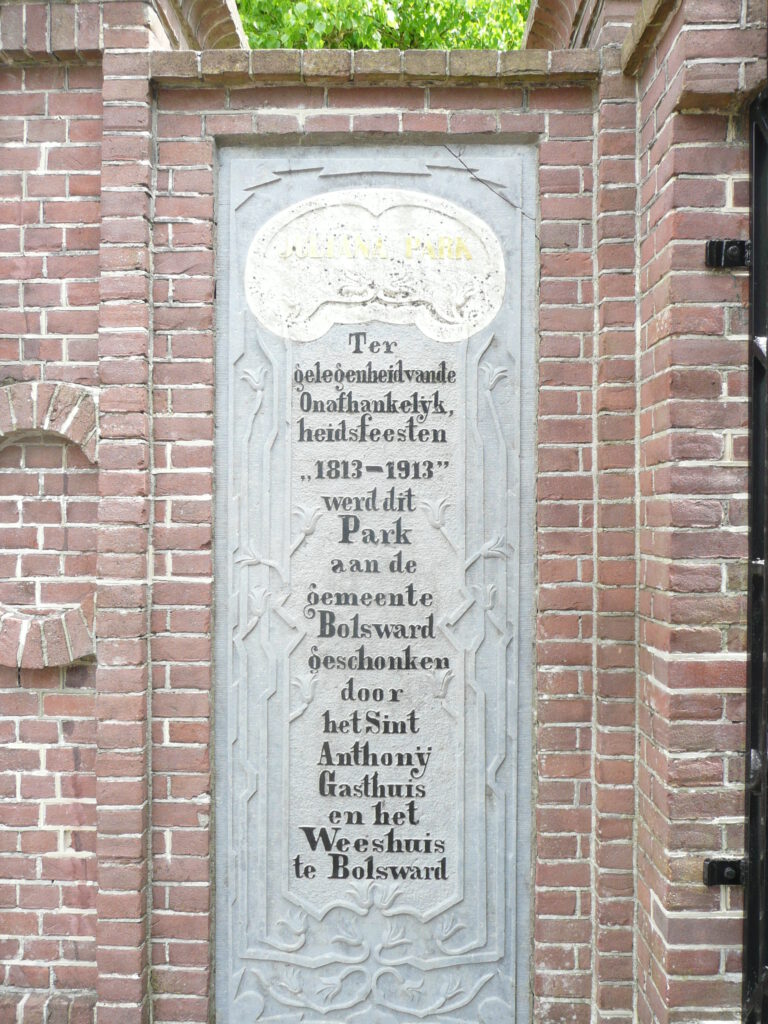 JULIANA PARK
Ter
gelegenheidvande
Onafhankelyk,
heidsfeesten
„1813-1913”
werd dit
Park
aan de
gemeente
Bolsward
geschonken
door
het Sint
Anthonij
Gasthuis
en het
Weeshuis
te Bolsward